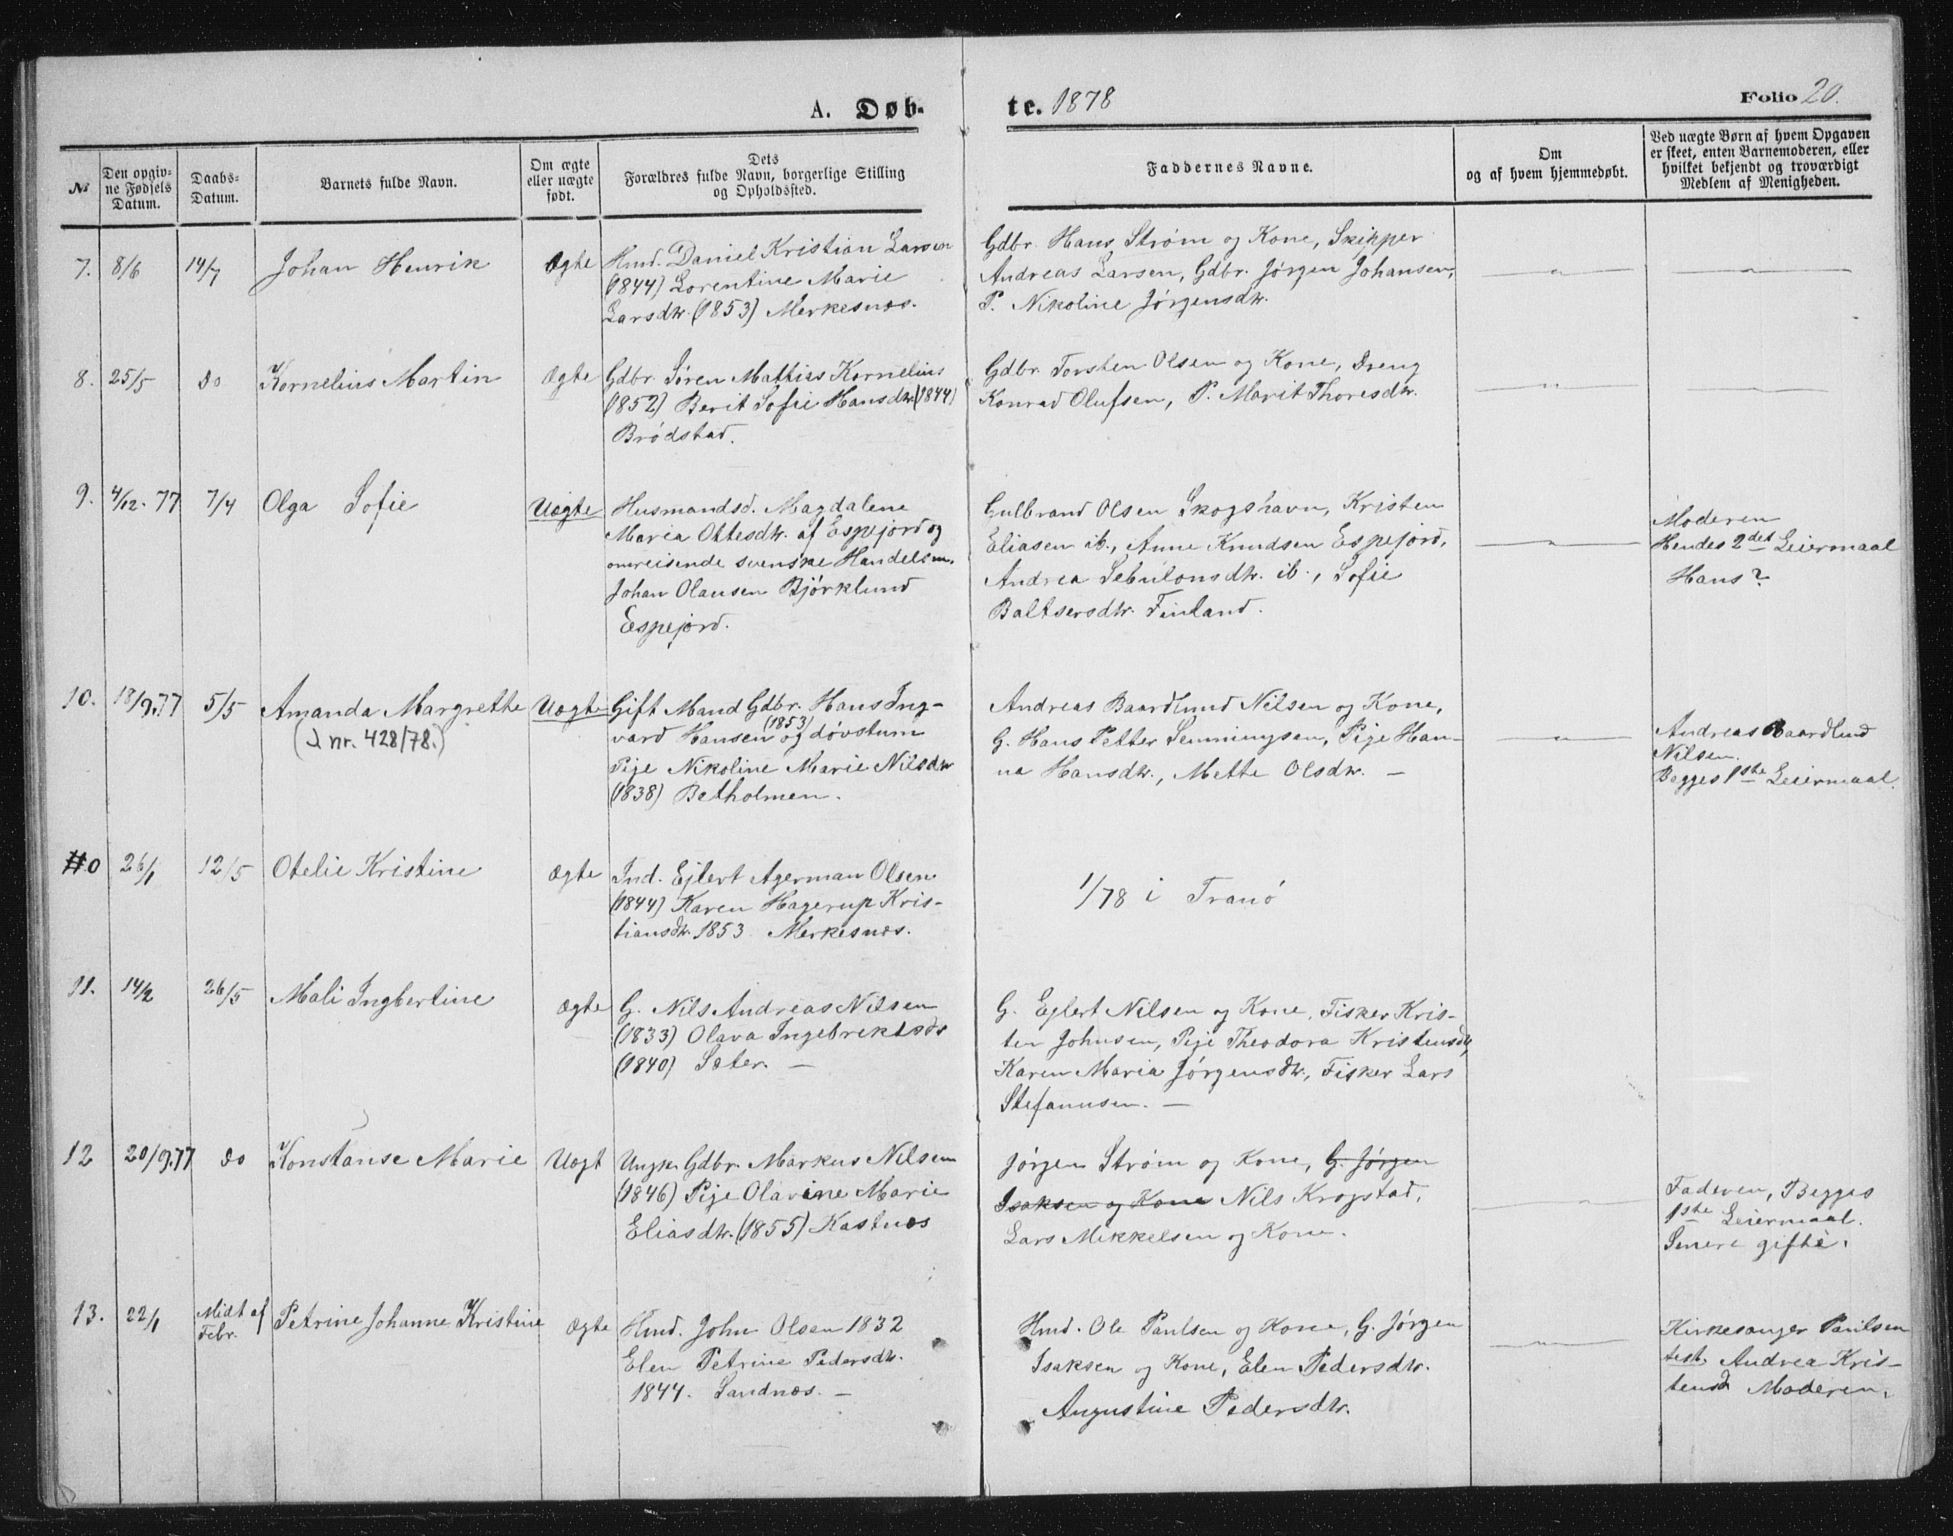 A. Døb-
te. 1878
Folio 20.
№
Den opgiv-
ne Fødsels
Datum.
Daabs-
Datum.
Barnets fulde Navn.
Om ægte
eller uægte
født.
Dets
Forældres fulde Navn, borgerlige Stilling
og Opholdssted.
Faddernes Navne.
Om
og af hvem hjemmedøbt.
Ved uægte Børn af hvem Opgaven
er skeet, enten Barnemoderen, eller
hvilket bekjendt og troværdigt
Medlem af Menigheden.
7. 8/6 14/7 Johan Henrik Ægte
Hmd. Daniel Kristian Larsen
(1844) Lorentine Marie
Larsdtr. (1853) Merkesnæs.
Gdbr. Hans Strøm og Kone, Skipper
Andreas Larsen, Gdbr. Jørgen Johansen,
P. Nikoline Jørgensdtr.
8. 25/5 do Kornelius Martin Ægte
Gdbr. Søren Mathias Kornelius
(1852) Berit Sofie Hansdtr. (1844)
Brødstad.
Gdbr. Torsten Olsen og Kone, Dreng
Konrad Olufsen, P. Marit Thoresdtr.
9. 4/12. 77 7/4 Olga Sofie Uægte
Husmandsd. Magdalene
Maria Ottesdtr. af Espejord og
omreisende svenske Handelsm.
Johan Olausen Björklund
Espejord.
Gulbrand Olsen Skogshavn, Kristen
Eliasen ib., Anne Knudsen Espejord,
Andrea Sebulonsdtr. ib., Sofie
Baltsersdtr. Finland.
Moderen
Hendes 2det Leiermaal
Hans?
10. 18/9.77 5/5 Amanda Margrethe Uægte
(J. nr. 428/78.)
Gift Mand Gdbr. Hans Ing-
vard Hansen (1853) og døvstum
Pije Nikoline Marie Nilsdtr
(1838) Betholmen.
Andreas Baardlund Nilsen og Kone,
G. Hans Petter Senningsen, Pige Han-
na Hansdtr., Mette Olsdtr. —
Andreas Baardlund
Nilsen.
Begges 1ste Leiermaal.
0 26/1 12/5 Otelie Kristine Ægte
Ind. Ejlert Agerman Olsen
(1844) Karen Hagerup Kris-
tiansdtr. 1853 Merkesnæs.
1/78 i Tranø
11. 14/2 26/5 Mali Ingbertine Ægte
G. Nils Andreas Nilsen
(1833) Olava Ingebrektsdtr
(1840) Sæter. —
G. Ejlert Nilsen og Kone, Fisker Kris-
ten Johnsen, Pije Theodora Kristensdtr,
Karen Maria Jørgensdtr., Fisker Lars
Stefanusen. —
12 20/9.77 do Konstanse Marie Uægt
Ungk. Gdbr. Markus Nilsen
(1846) Pije Olavine Marie
Eliasdtr. (1855) Kastnæs
Jørgen Strøm og Kone, G. Jørgen
Isaksen og Kone Nils Krogstad,
Lars Mikkelsen og Kone.
Faderen, Begges
1ste Leiermaal.
Senere gifte.
13. 22/1 Midt af
Febr. Petrine Johanne Kristine Ægte
Hmd. John Olsen 1832
Elen Petrine Pedersdtr.
1844. Sandnæs. —
Hmd. Ole Paulsen og Kone, G. Jørgen
Isaksen og Kone, Elen Pedersdtr.
Augustine Pedersdtr.
Kirkesanger Paulsen
test. Andrea Kris-
tensd Moderen.